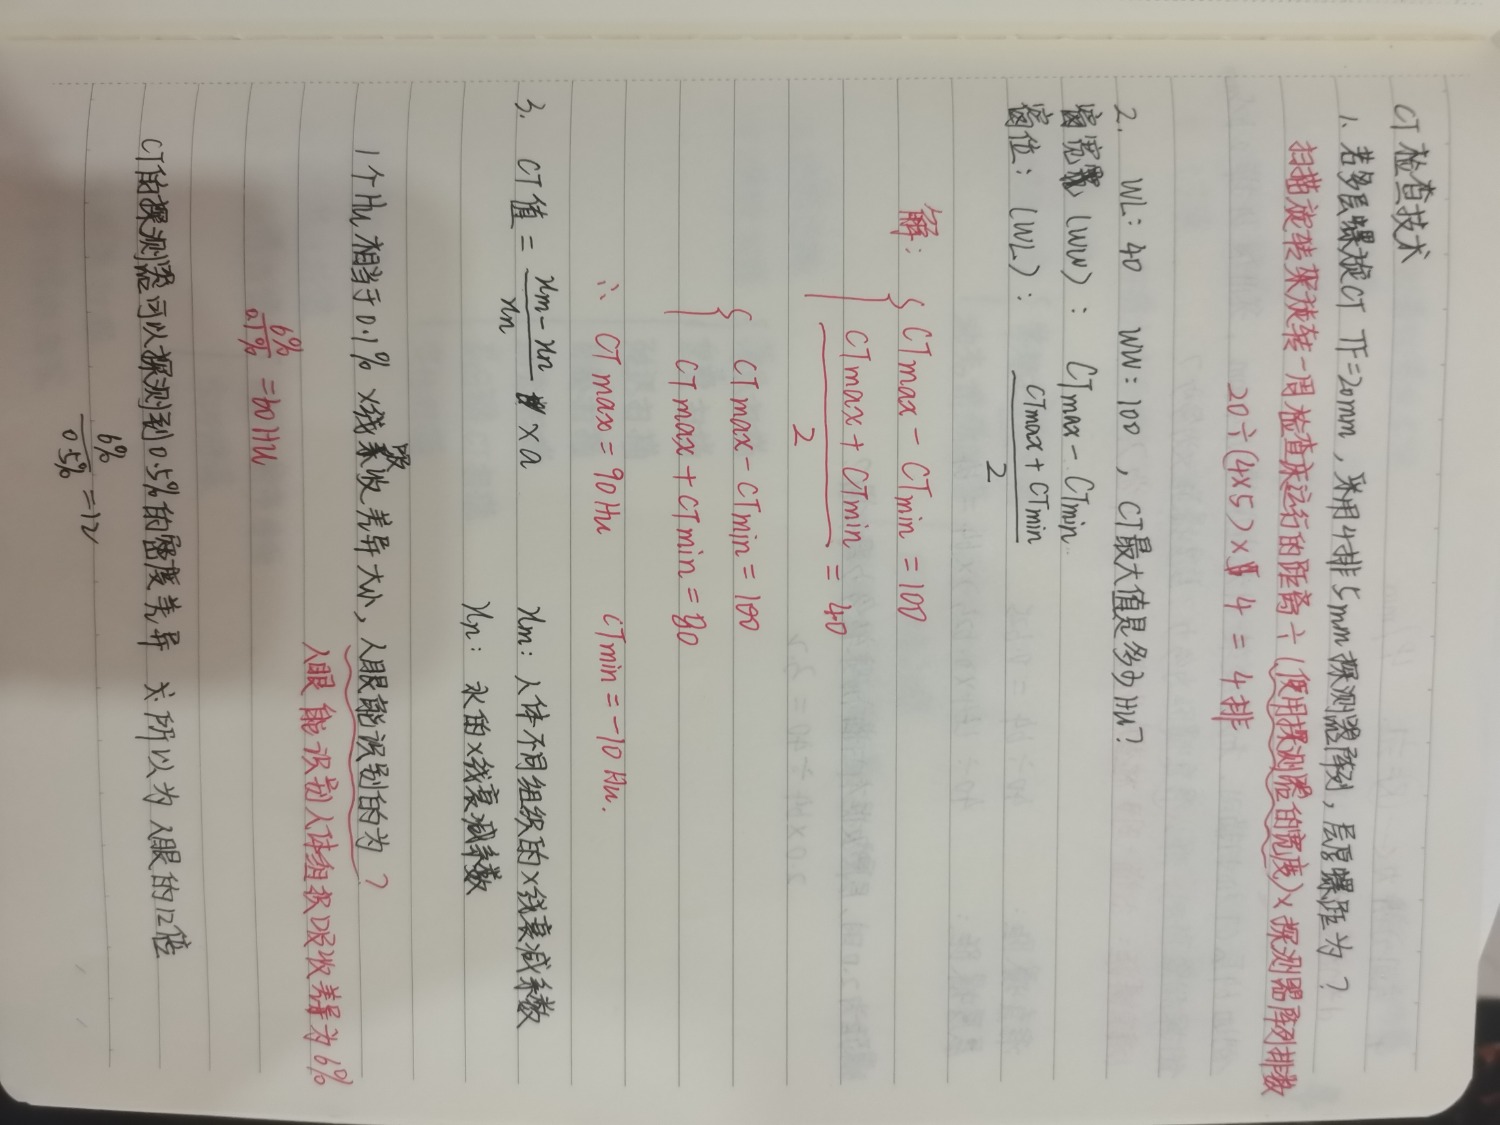 CT检查技术
1、若多层螺旋CT TF=20mm，采用4排5mm探测器阵列，层厚螺距为？
扫描旋转架旋转一周检查床运行的距离÷(使用探测器的宽度)×探测器阵列排数
20÷(4×5)×4=4排
2. WL：40 WW：100，CT最大值是多少Hu？
窗宽(WW)： CTmax-CTmin
窗位：(WL)： CTmax+CTmin
2
解：{ CTmax-CTmin=100
CTmax+CTmin =40
2
{ CTmax-CTmin=100
CTmax+CTmin=80
∴ CTmax=90Hu CTmin=-10Hu.
3. CT值= um-un ×a um：人体不同组织的X线衰减系数
un un：水的X线衰减系数
1个Hu相当于0.1% X线吸收差异大小，人眼能识别的为？
人眼能识别人体组织吸收差异为6%
6%
0.1% =60Hu
CT的探测器可以探测到0.5%的密度差异 所以为人眼的12倍
6%
0.5% =12